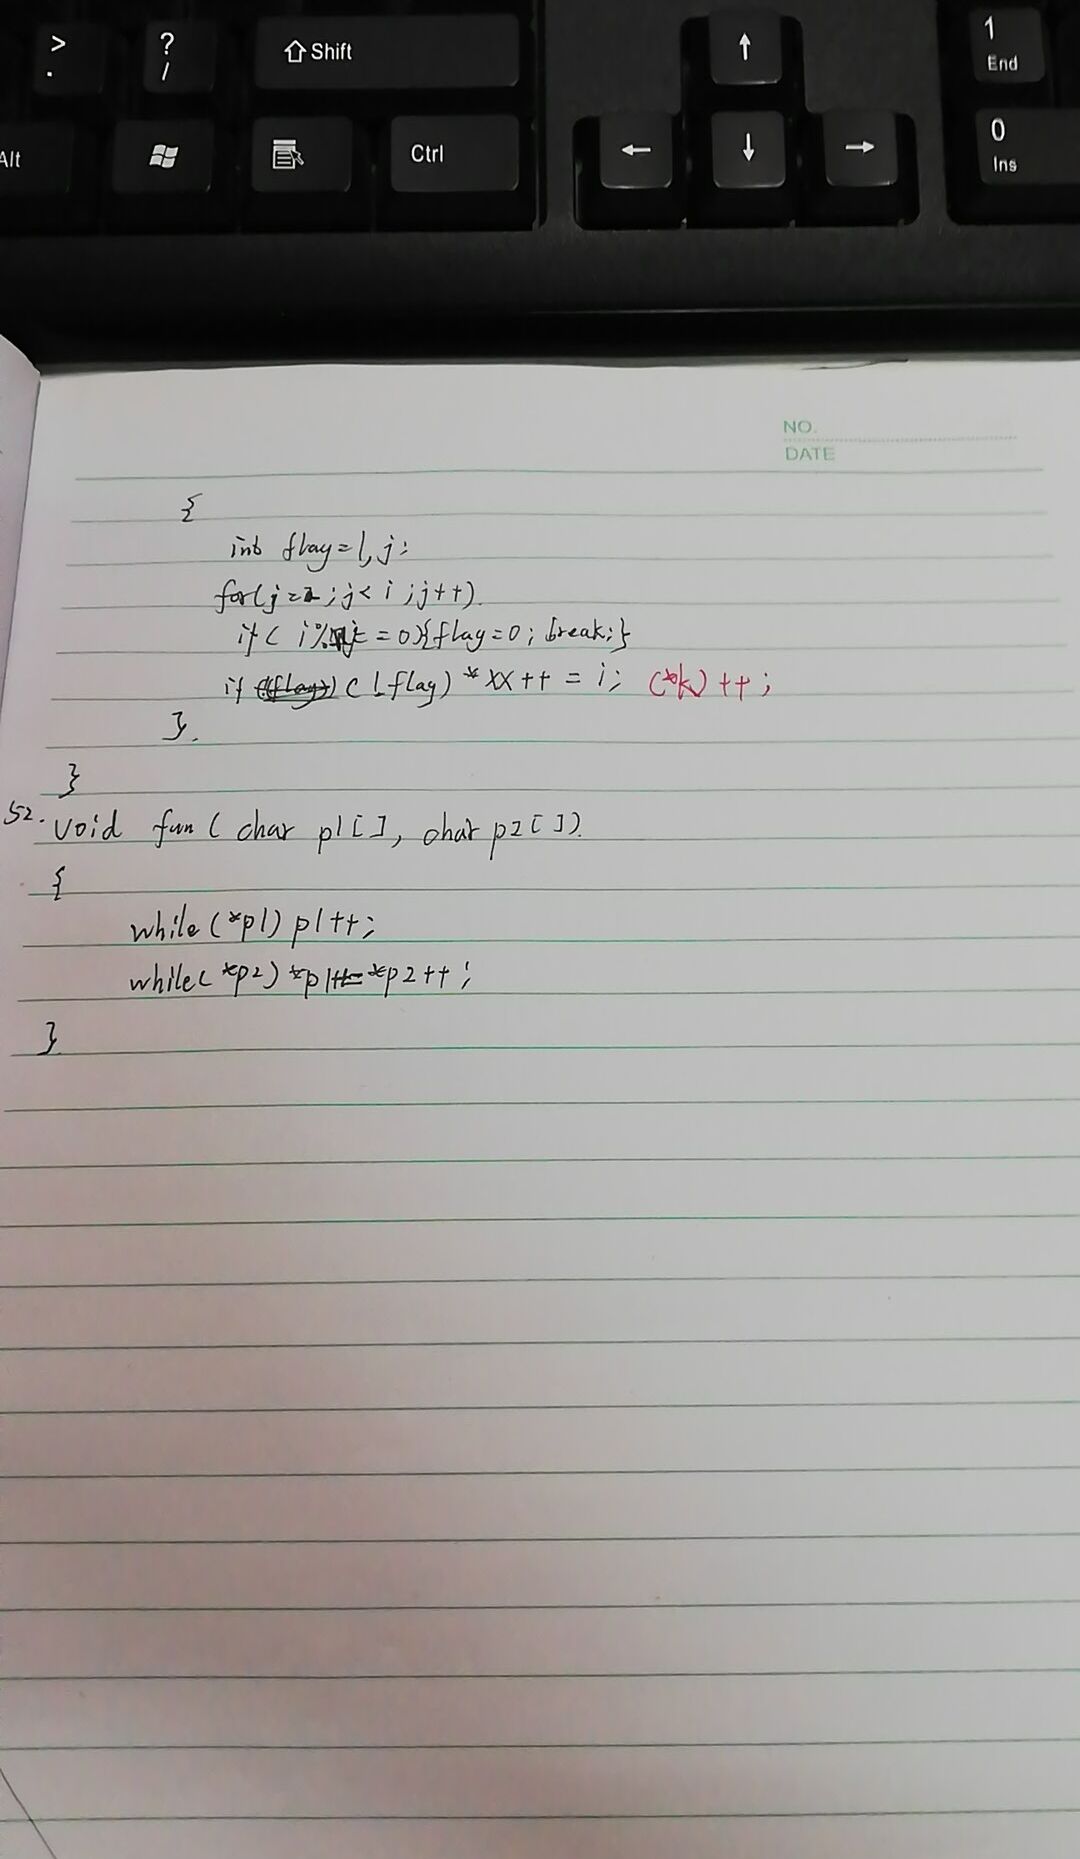 > ? ⇧ Shift ↑ 1
. / End
Alt Ctrl ← ↓ → 0
Ins
NO.
DATE
{
int flag=1,j;
for(j=2;j<i;j++)
if( i% = 0){flag=0; break;}
if (!flag) *xx++ = i; (*k)++;
}
}
52. void fun( char p1[], char p2[])
{
while(*p1) p1++;
while(*p2) *p1++=*p2++;
}